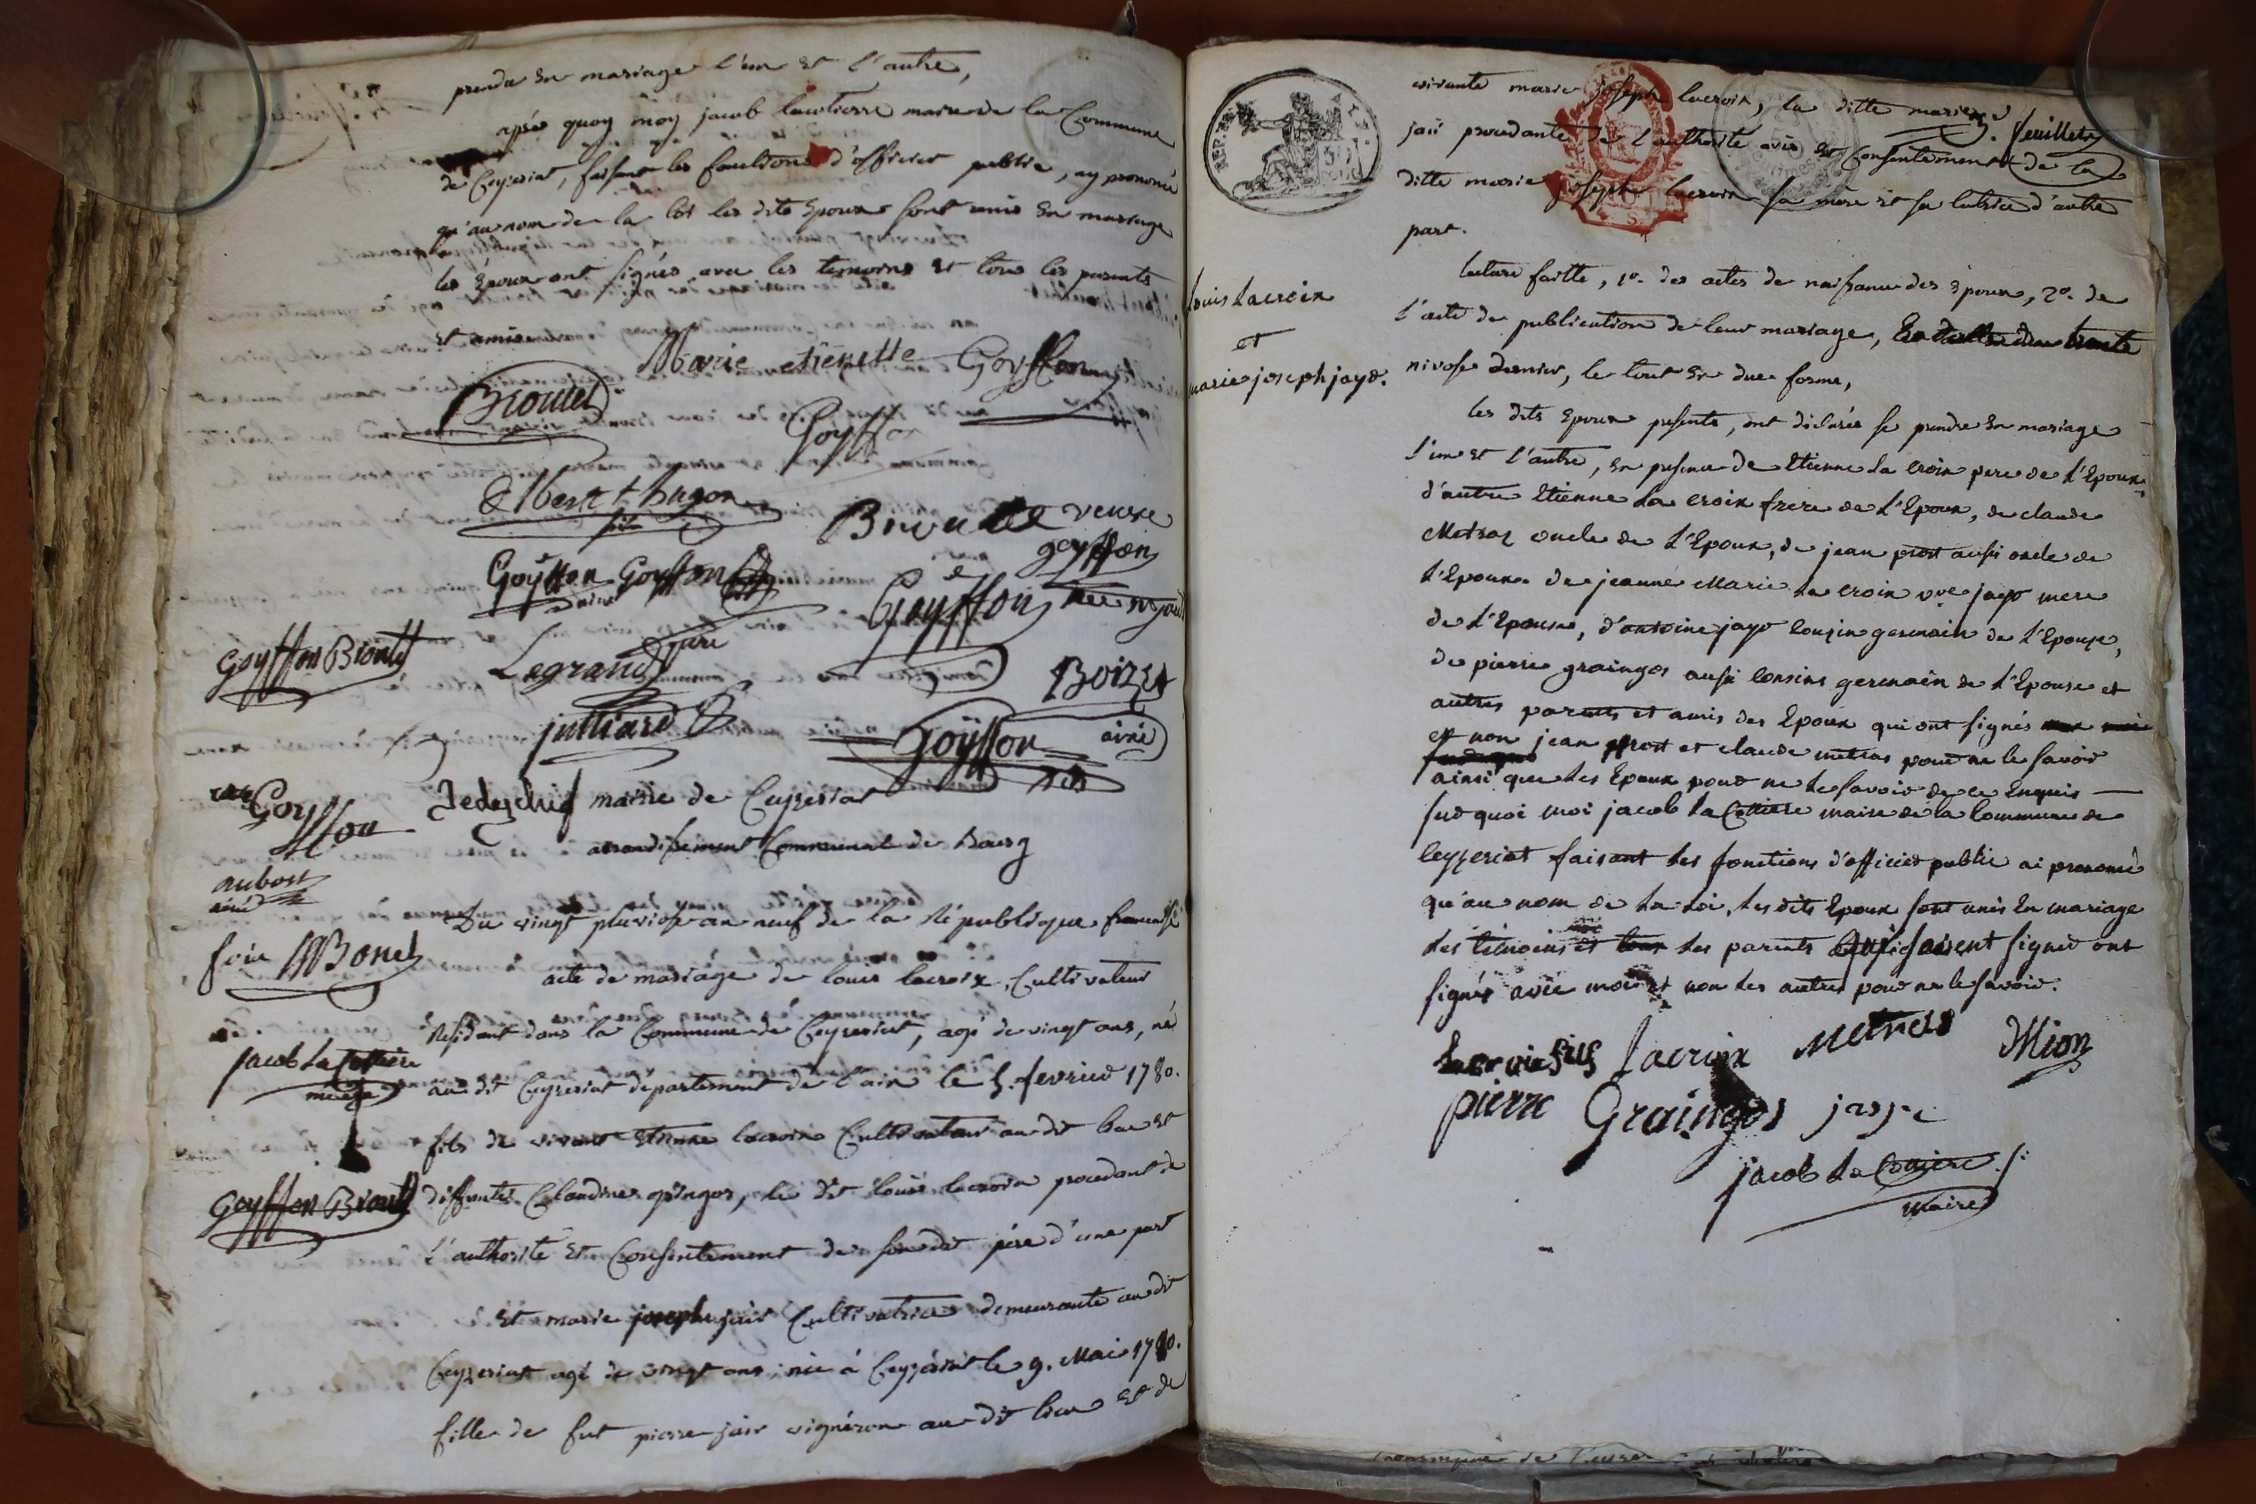 prendre en mariage l'un et l'autre,
après quoy moy jacob lacottierre maire de la Commune
de Ceyzeriat, faisant les fonctions d'officier public, ay prononcé
qu'au nom de la loi les dits Epoux sont unis en mariage
les Epoux ont signés avec les temoins et tous les parents
et amis
Marie etienette Goyffon
Brouled
Goyffon
Albert
Goyffon Goyffon
Brou veuve
goyffon
Goyffon
Goyffon
Legrand
Boizet
julliard
Goyffon ainé
Goyffon
maire de Ceyzeriat
arrondissement Communal de Bourg
aubost
ainé
Bonet
Du vingt pluviose an neuf de la République francaise
acte de mariage de louis lacroix, Cultivateur
Residant dans la Commune de Ceyzeriat, agé de vingt ans, né
jacob la Cottiere
maire
au dit Ceyzeriat departement de l'ain le 5. fevrier 1780.
fils de vivant Etienne lacroix Cultivateur au dit lieu et
Goyffon
deffunte Claudine gringos, le dit louis lacroix procedant de
l'authorité et Consentement de son dit père d'une part
et marie joseph jair Cultivatrice demeurante au dit
Ceyzeriat agé de vingt ans, née à Ceyzériat le 9. Mai 1780.
fille de fut pierre jair vignéron au dit lieu et de
REP.
vivante marie joseph lacroix, la ditte marie
feuillet
jair procedante de l'authorité avis et Consentement de la
ditte marie joseph lacroix sa mère et sa tutrice d'autre
part.
louis Lacroix
et
marie joseph jayr.
lecture faitte, 1º. des actes de naissance des Epoux, 2º. de
l'acte de publication de leur mariage, trente
nivose dernier, le tout en due forme,
les dits Epoux presents, ont déclarés se prendre en mariage
l'un et l'autre, en presence de Etienne La croix pere de l'Epoux,
d'autre Etienne La croix frere de l'Epoux, de claude
Metraz oncle de l'Epoux, de jean prost aussi oncle de
l'Epoux de jeanne Marie La croix vve jayr mere
de l'Epouse, d'antoine jayr cousin germain de l'Epouse,
de pierre graingos aussi cousins germain de l'Epouse et
autres parents et amis des Epoux qui ont signés
et non jean prost et claude metras pour ne le savoir
ainsi que les Epoux pour ne le savoir de ce Enquis
sur quoi moi jacob La Cottiere maire de la Commune de
Ceyzeriat faisant les fonctions d'officier public ai prononcé
qu'au nom de la Loi, les dits Epoux sont unis En mariage
les témoins et les parents qui savent signer ont
signés avec moi et non les autres pour ne le savoir.
Lacroix fils Lacroix Metras Mion
pierre Graingos jayr
jacob La Cottiere
maire